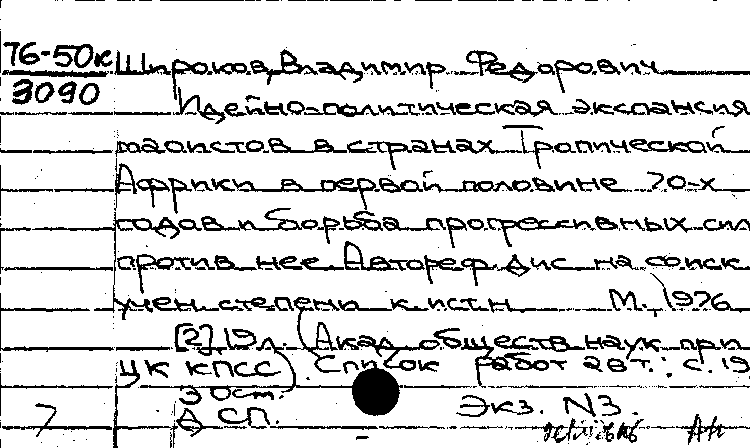 76-50к Широков, Владимир Федорович
3090
Идейно-политическая экспансия
маоистов в странах Тропической
Африки в первой половине 70-х
годов и борьба прогрессивных сил
против нее. Автореф. дис. на соиск.
учен. степени к. ист. н. М., 1976
[2], 19 л. (Акад. обществ. наук при
ЦК КПСС). Список работ авт.: с. 19
3 Ост.
Д СП. Экз. N3.
7